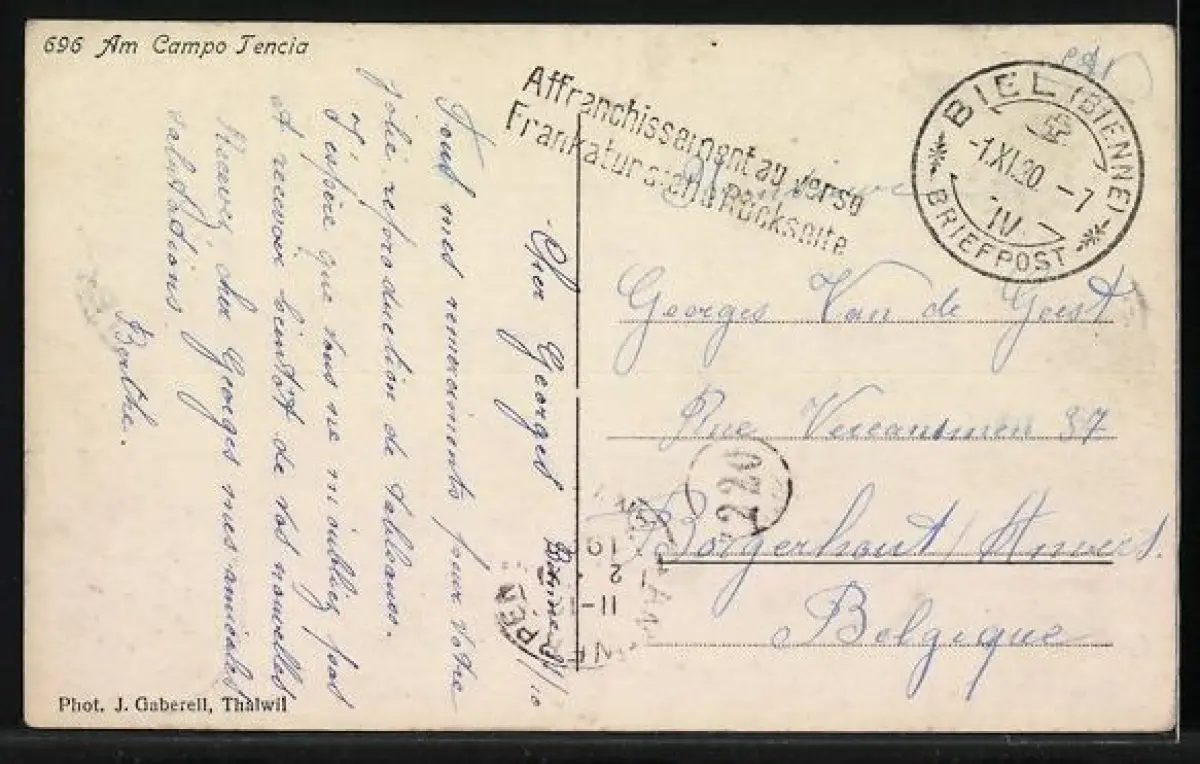 696 Am Campo Tencia
Affranchissement au verso
Frankatur siehe Rückseite
BIEL (BIENNE)
-1.XI.20 -7
IV
BRIEFPOST
Cher Georges
Bienne 31/10
Tous mes remerciments pour votre
jolie reproduction de tableaux.
J'espère que vous ne m'oubliez pas
et recevoir bientôt de vos nouvelles
Recevez, cher Georges mes amicales
salutations
Berthe.
Georges Van de Geest
Rue Vercammen 37
Borgerhout / Anvers.
Belgique
220
ANTWERPEN
11-1
2.
19
Phot. J. Gaberell, Thalwil